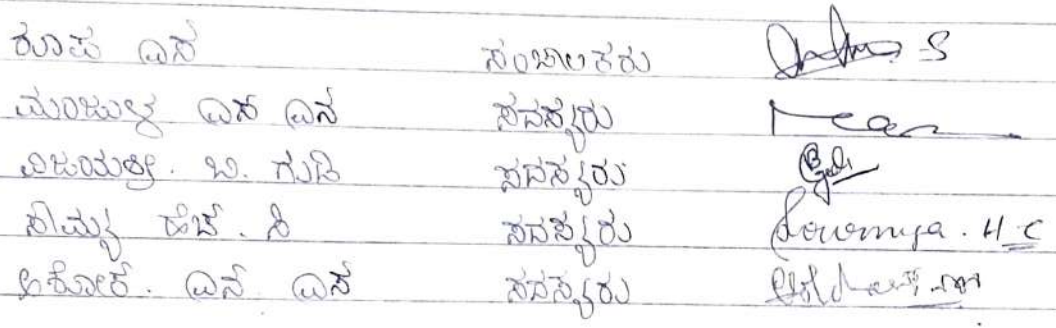 ರೂಪ ಎಸ್ ಸಂಚಾಲಕರು S
ಮಂಜುಳ ಎಸ್ ಎನ್ ಸದಸ್ಯರು
ವಿಜಯಶ್ರೀ. ಬಿ. ಗುಡಿ ಸದಸ್ಯರು
ಸೌಮ್ಯ ಹೆಚ್. ಸಿ ಸದಸ್ಯರು Sowmya. H C
ಅಶೋಕ. ಎನ್ ಎಸ್ ಸದಸ್ಯರು